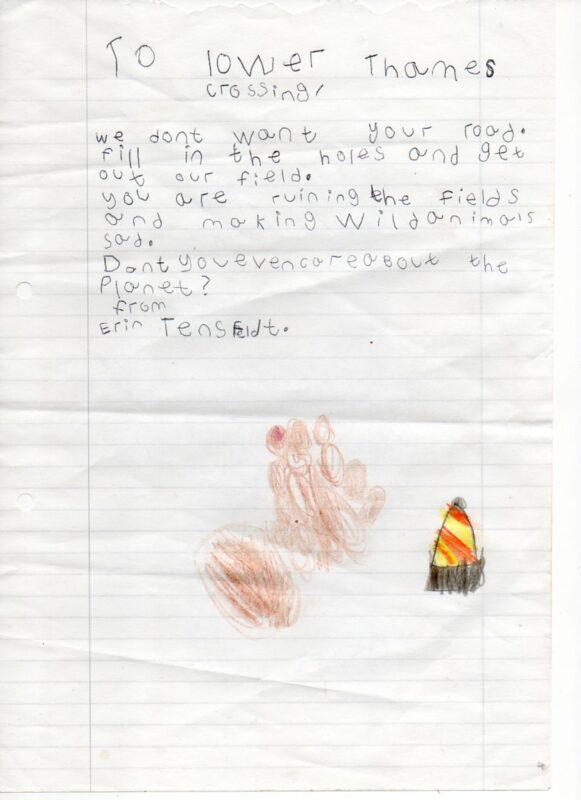 To lower Thames
crossing,
we dont want your road.
fill in the holes and get
out our field.
you are ruining the fields
and making Wildanimals
sad.
Dont you even care about the
Planet?
from
Erin Tensfeldt.